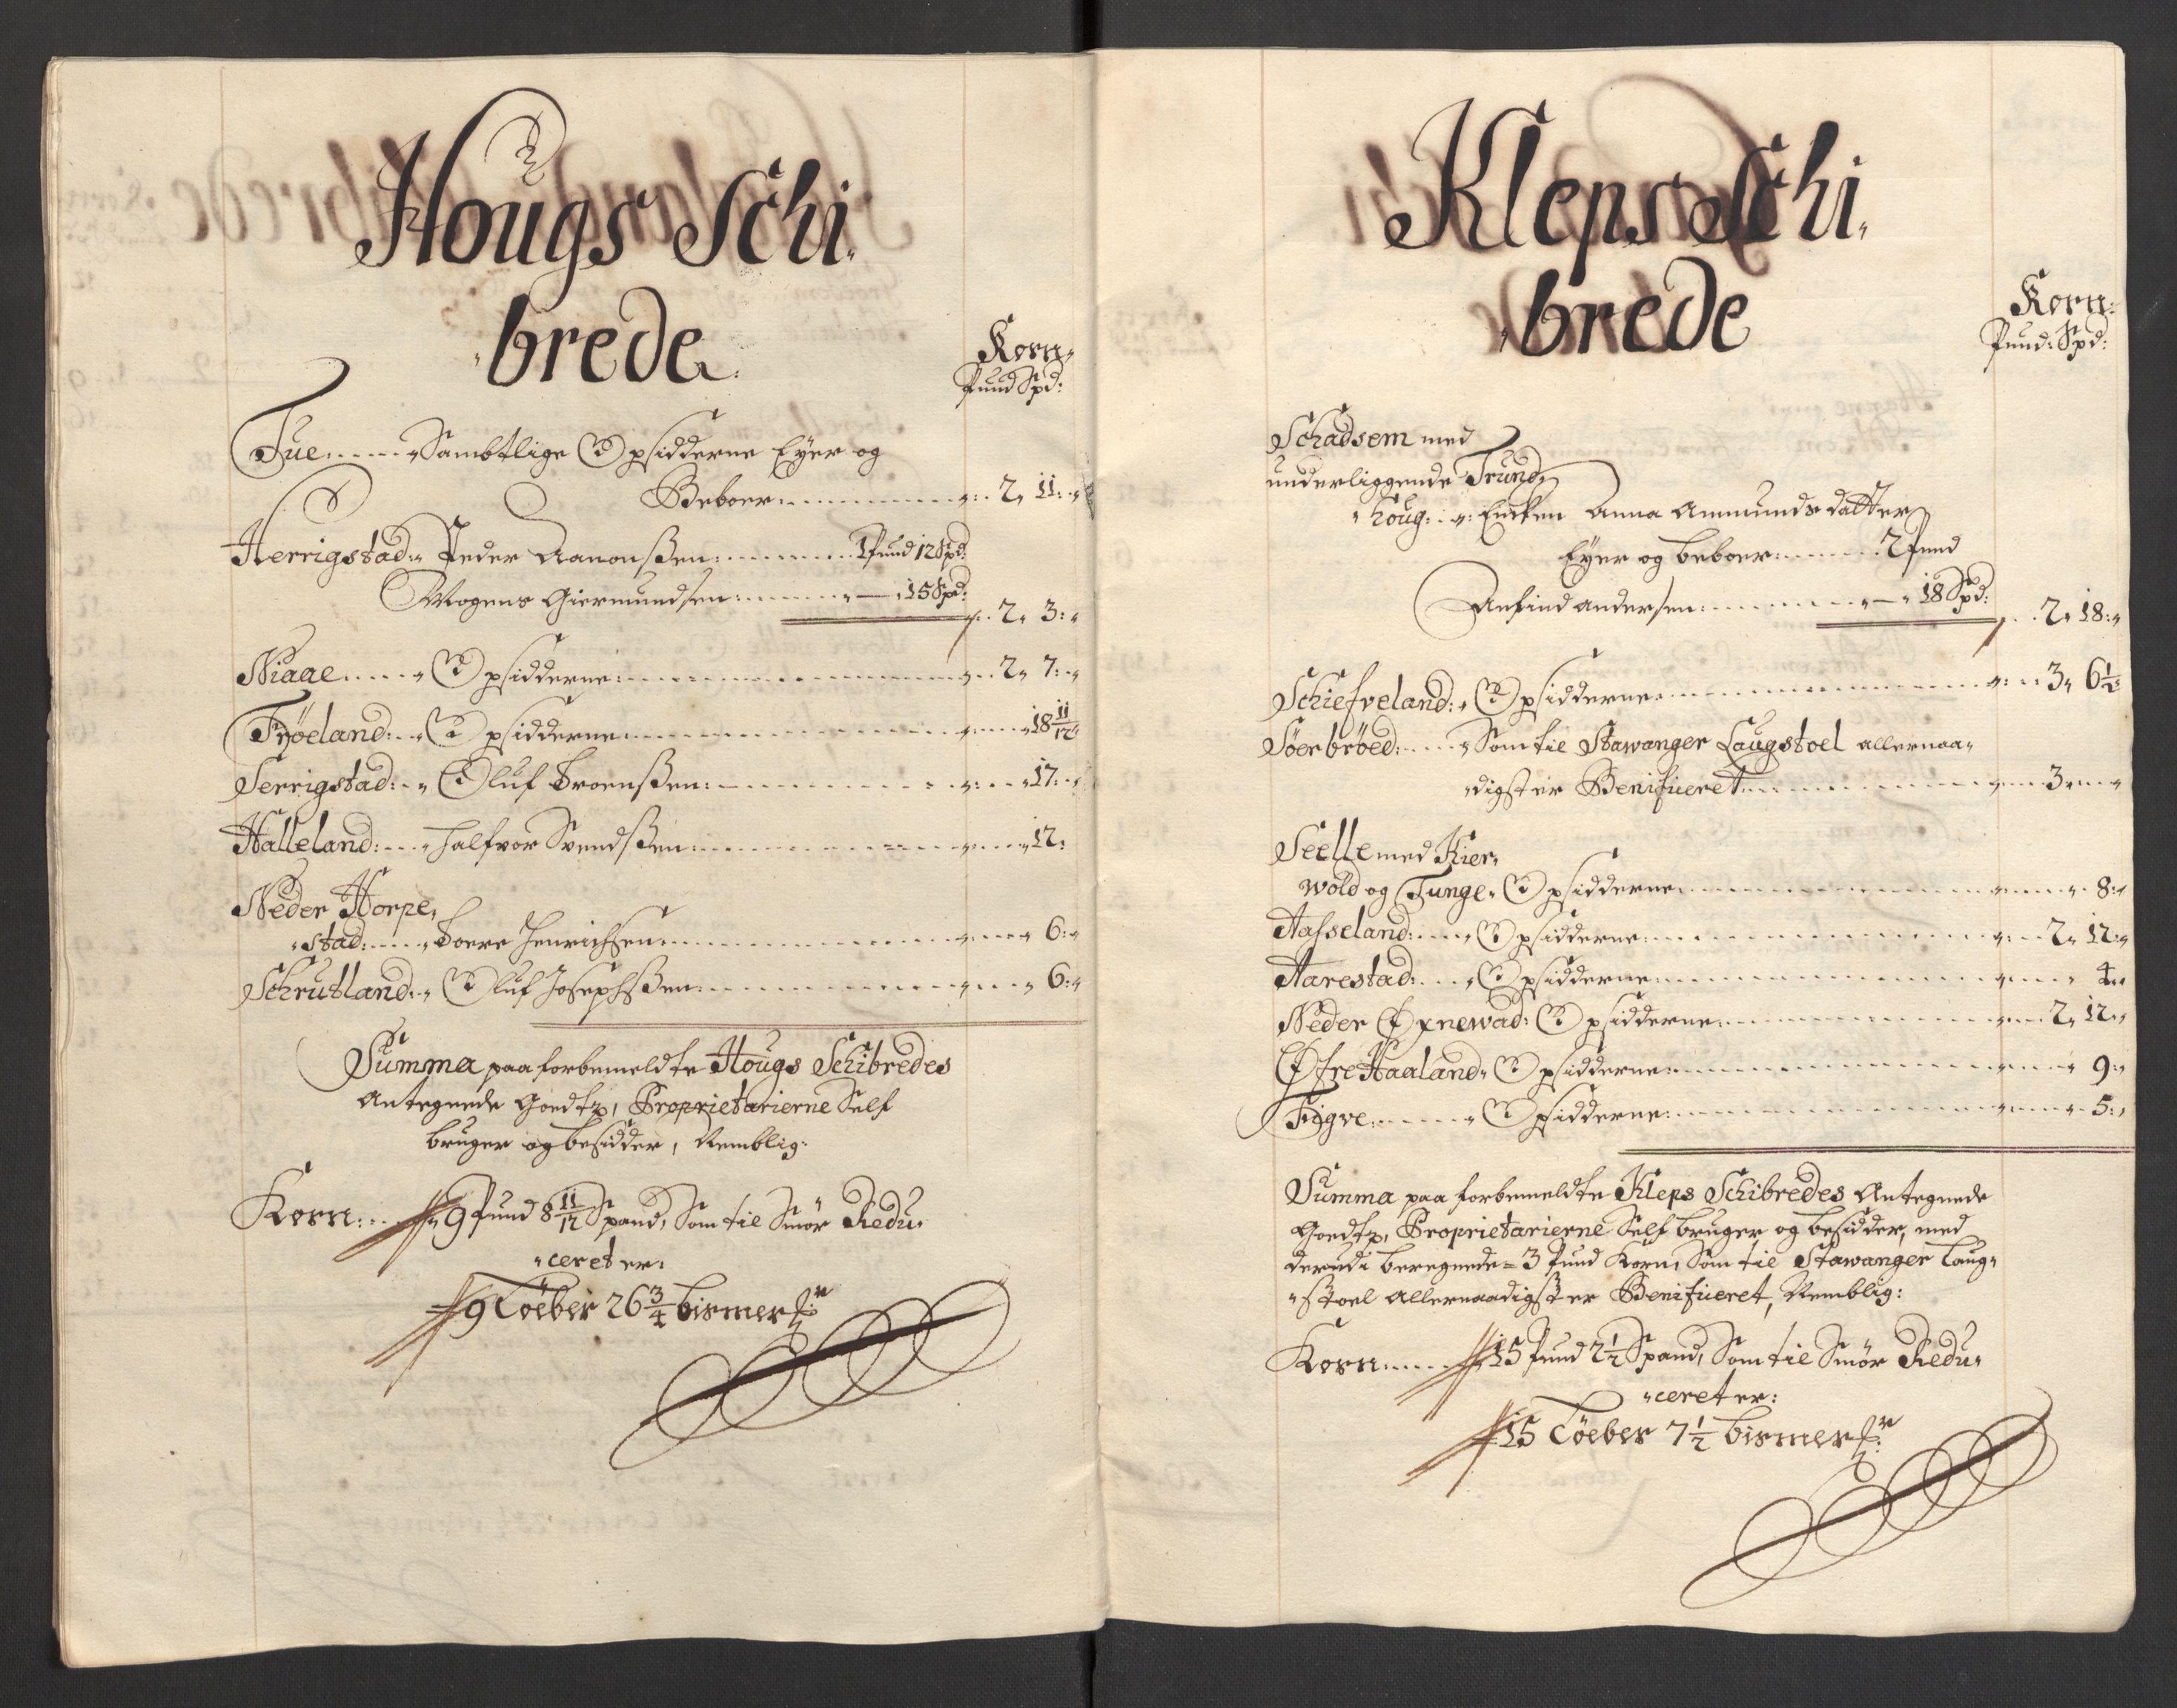 Hougs Schi„
„brede
Korn„
Pund Spd:
Tue: „ Sambtlige Opsidderne Eyer og
Beboer: „ 2„ 11: „
Herrigstad: „ Peder Aanonßen: 1 Pund 12 Spd:
Mogens Giermundsen: „ — „ 15 Spd:
„ 2„ 3: „
Niaae „ Opsidderne: „ 2„ 7: „
Frøeland: „ Opsidderne „ 18 11/12
Serrigstad: „ Oluf Troenßen: „ 17: „
Halleland: „ Halfvor Svendßen: „ 12:
Neder Horpe„
„stad: „ Toere Henrichsen „ 6: „
Schrutland: „ Oluf Josephßen: „ 6: „
Summa paa forbemeldte Hougs Schibredes
Antegnede Goedtz, Proprietarierne Self
bruger og besidder, Nemblig:
Korn: „ 9 Pund 8 11/12 Spand, Som til Smør Redu„
„ceret er:
9 Løeber 26 3/4 bismer
Kleps Schi„
„brede
Korn:
Pund: Spd:
Schadsem med
underliggende Trund„
„houg: „ Encken Anna Ammunds datter
Eyer og beboer: 2 Pund
Anfind andersen: „ — „ 18 Spd:
2„ 18: „
Schiefveland: „ Opsidderne „ 3„ 6 1/2
Søerbröed: „ Som til Stawanger Laugstoel allernaa„
„digst er Benificeret „ 3 „
Seelle med Kier„
wold og Tunge„ Opsidderne „ 8: „
Aasseland: „ Opsidderne: „ 2„ 12: „
Aarestad: „ Opsidderne: „ 4: „
Neder Øxnewad: Opsidderne: „ 2„ 12: „
Øfre Haaland„ Opsidderne: „ 9: „
Figve: „ Opsidderne: „ 5: „
Summa paa forbemeldte Kleps Schibredes Antegnede
Goedtz, Proprietarierne Self bruger og besidder, med
derudi beregnede 3 Pund Korn, Som til Stawanger Laug„
„stoel Allernaadigst er Benificeret, Nemblig:
Korn: 15 Pund 2 1/2 Spand, Som til Smør Redu„
„ceret er:
15 Løeber 7 1/2 bismer